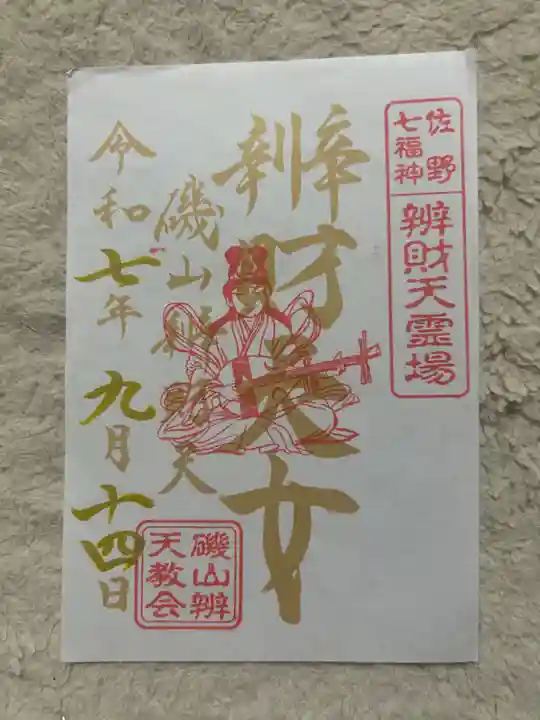 佐野
七福神
辨財天霊場
辨財天女
磯山辨財天
令和七年九月十四日
磯山辨
天教会